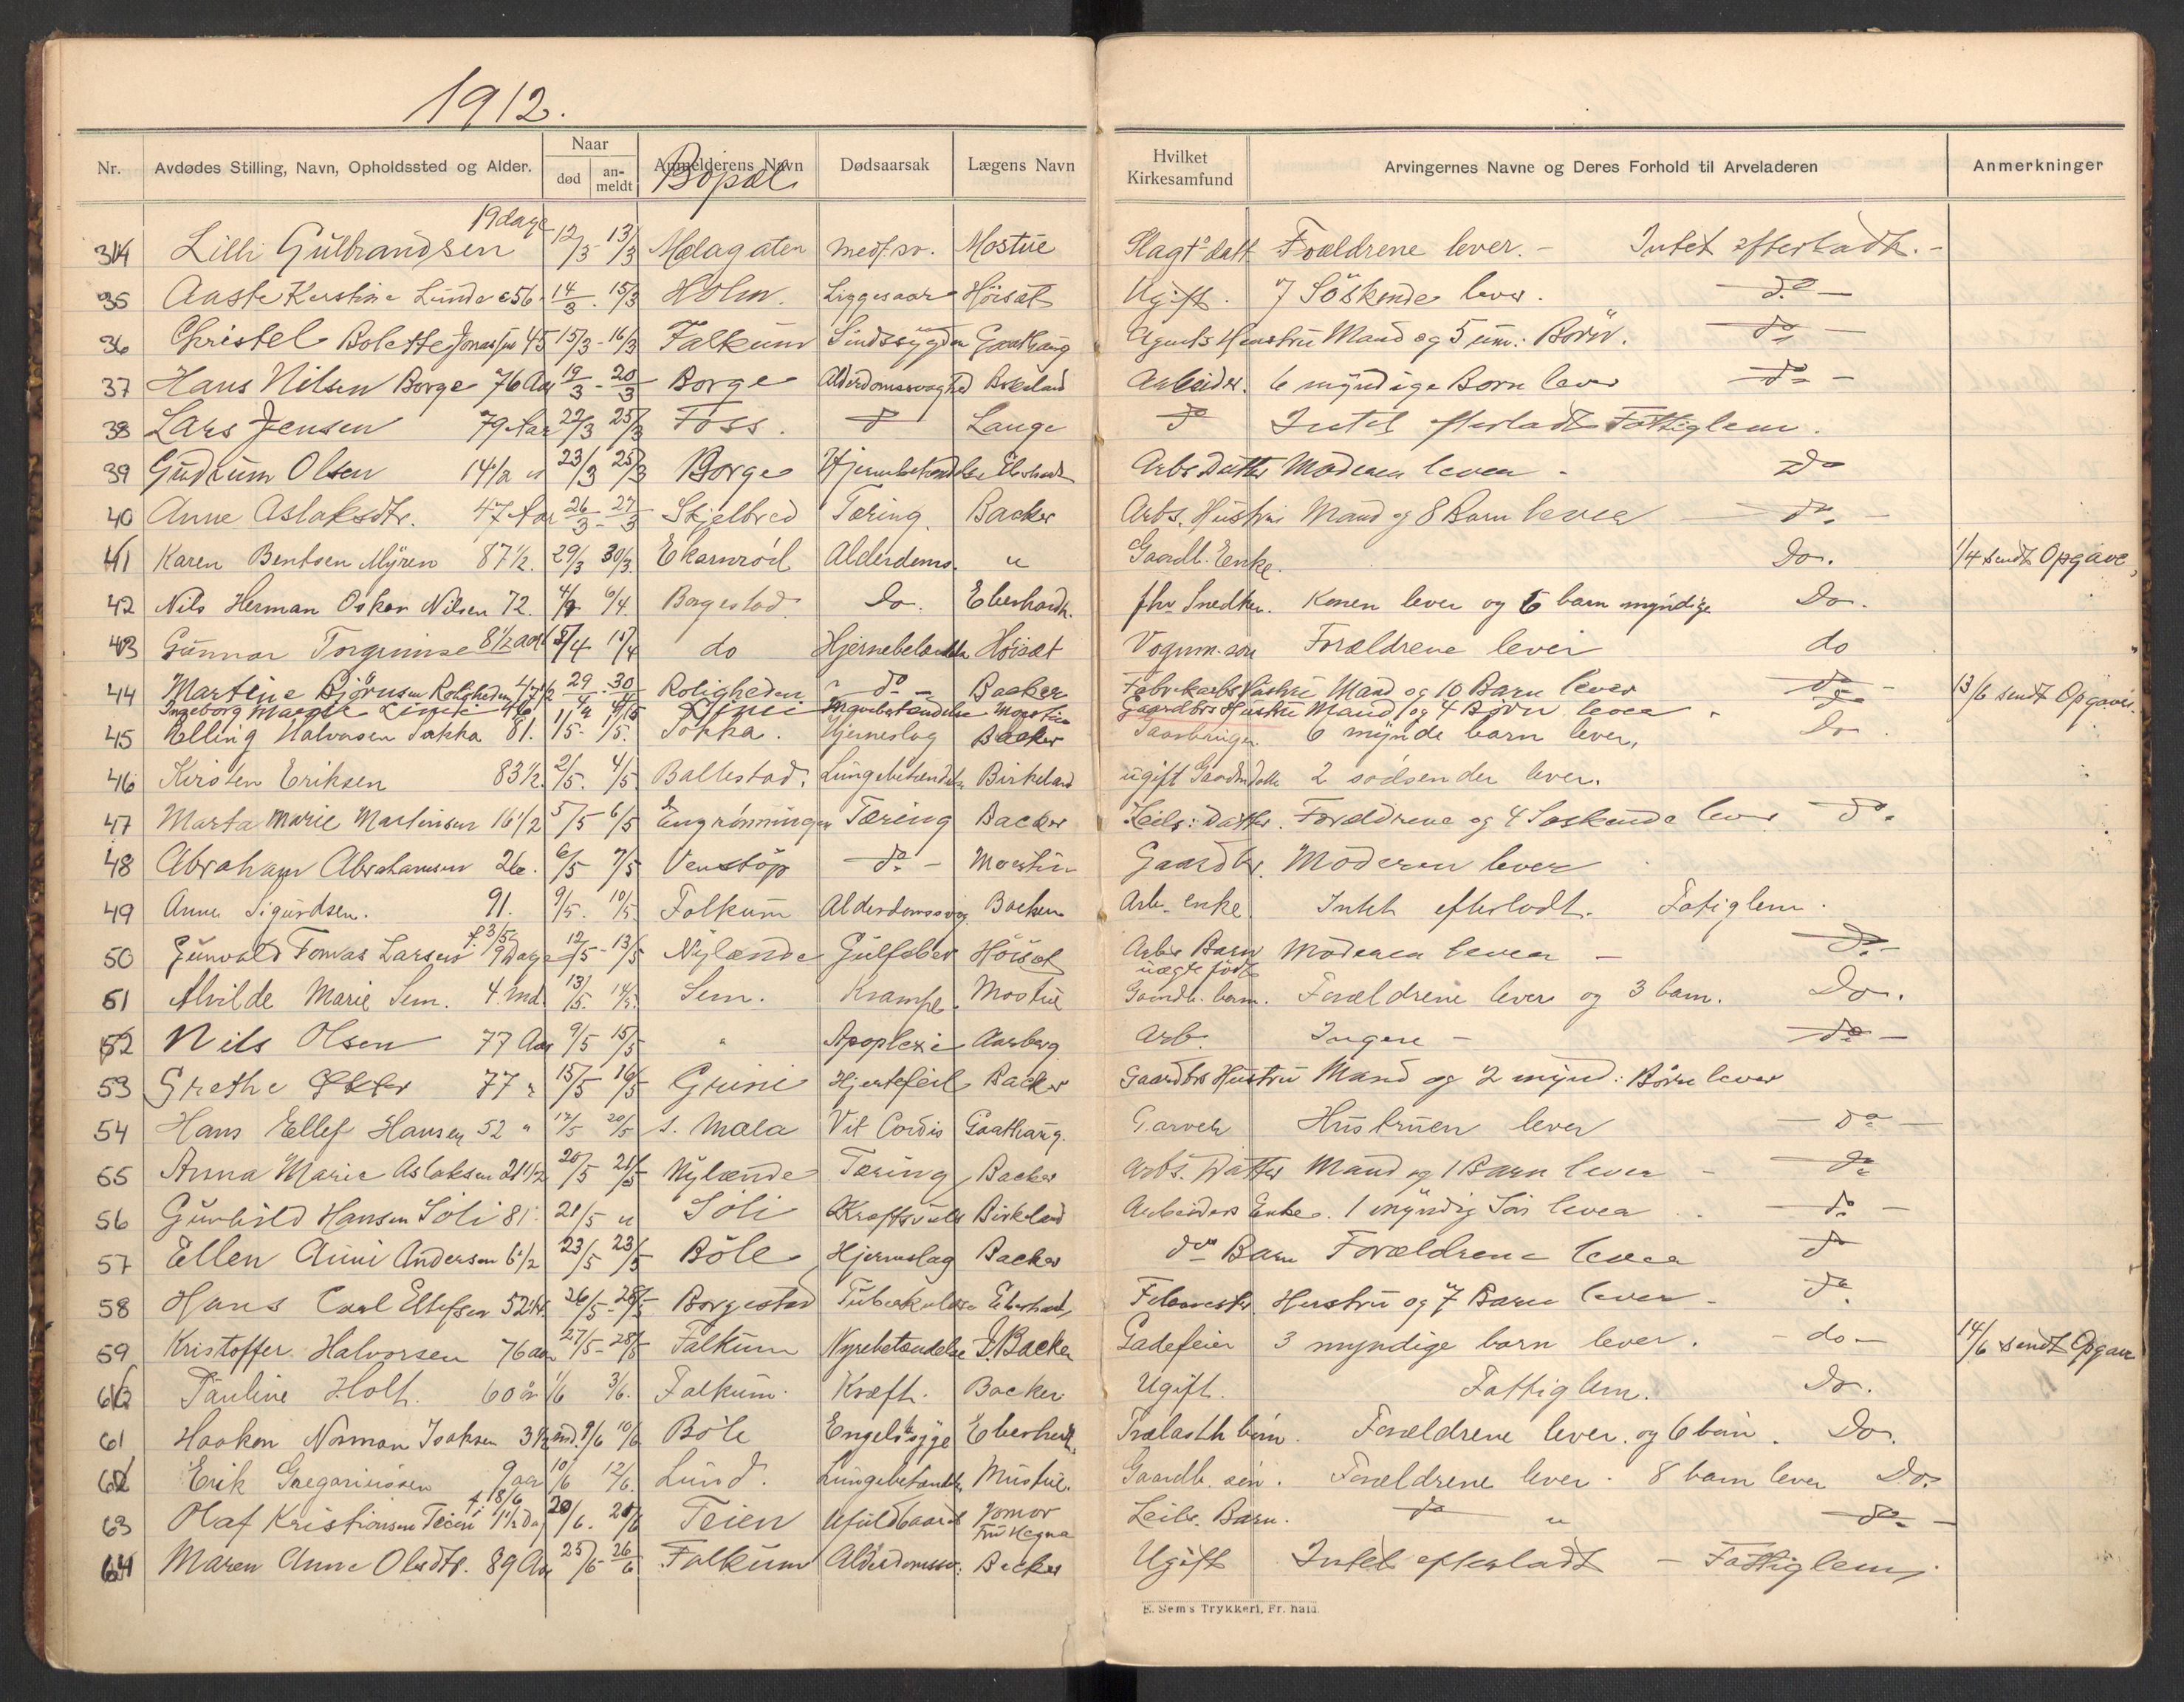 1912.
Nr. Avdødes Stilling, Navn, Opholdssted og Alder. Naar død an-meldt Anmelderens Navn Bopæl Dødsaarsak Lægens Navn Hvilket Kirkesamfund Arvingernes Navne og Deres Forhold til Arveladeren Anmerkninger
34 Lilli Gulbrandsen 19 dage 12/3 - 13/3 Mælagaten medf. sv. Mostue Slagt. datt. Forældrene lever. - Intet efterladt. -
35 Aaste Kerstine Lunde 56 14/3 . 15/3 Holm. Liggesaar Høisæt Ugift. 7 Söskende lever. do -
36 Christel Bolette 45 15/3 - 16/3 Falkum Sindssygdom Gaathaug Agents Hustru Mand og 5 um: Børn. do -
37 Hans Nilsen Borge 76 Aar 19/3 - 20/3 Borge Alderdomssvaghed Birkeland Arbeider. 6 myndige Børn lever do -
38 Lars Jensen 79 Aar 22/3 25/3 Foss. do Lange do Intet efterladt Fattiglem.
39 Gudrum Olsen 14 1/2 " 23/3 25/3 Borge Hjernebetændelse Eberhardt Arbs Datter Moderen lever - do
40 Anne Aslaksdtr. 47 Aar 26/3 - 27/3 Skjelbred Tæring. Backer Arbs. Hustru Mand og 8 Børn lever - do -
41 Karen Bentsen Myren 87 1/2. 29/3 30/3. Ekornrød Alderdoms. " Gaardb. Enke. Do. 1/4 sendt Opgave,
42 Nils Herman Oskar Nilsen 72. 4/4 6/4. Borgestad Do. Eberhardt. fhv Snedker. Konen lever og 6 barn myndige Do.
43 Gunnar Torgrimse 8 1/2 aar 15/4 do Hjernebetændelse Høisæt Vognm. søn Forældrene lever do
44 Martine Bjørnsen Roligheden 47 1/2 29/4 30/4 Roligheden do - Backer Fabrikarbs Hustru Mand og 10 Børn lever do - 13/6 sendt Opgave.
Ingeborg Marie Limi Limi Mostue Gaardbrs Hustru Mand og 4 Børn lever - do
45 Elling Halvorsen Sokka 81. 1/5 - 1/5. Sokka. Hjerneslag Backer Gaardbruger. 6 mynde børn lever, Do
46 Kirsten Eriksen 83 1/2. 2/5. 4/5 Ballestad. Lungebetændelse Birkeland ugift Gaardm datter 2 sødsender lever.
47 Marta Marie Martinsen 16 1/2 5/5 6/5 Engrønningen Tæring Backer Leils: Datter. Forældrene og 4 Søskende lever do.
48 Abraham Abrahamsen 26. 6/5 7/5 Venstøp do - Moestue Gaardbr. Moderen lever
49 Anne Sigurdsen. 91. 9/5. 10/5. Falkum Alderdomssvag Backer Arb. enke. Intet efterladt. Fatiglem.
50 Gunvald Tomas Larsen f. 3/5 9 Dage 12/5 - 13/5 Nylænde Gulfeber Høisæt Arbs Barn uægte født Moderen lever - do -
51 Alvilde Marie Sem. 4. md. 13/5. 14/5. Sem. Krampe. Mostue Gaardb. barn. Forældrene lever og 3 barn. Do.
52 Nils Olsen 77 Aar 9/5 15/5 " Apoplexi Aarberg Arb. Ingen - do -
53 Grethe 77 " 15/5 16/5 Grini Hjertefeil Backer Gaardbrs Hustru Mand og 2 mynd: Børn lever
54 Hans Ellef Hansen 52 " 17/5 20/5 s. Mæla Vit Cordis Gaathaug. Garver Hustruen lever - do -
55 Anna Marie Aslaksen 21 1/2 20/5 21/5 Nylænde Tæring Backer Arbs. Datter Mand og 1 Barn lever - do
56 Gunhild Hansen Söli 81. 21/5 " Söli Kræftsvulst Birkeland Arbeiders Enke. 1 myndig Søn lever .. do -
57 Ellen Anni Andersen 6 1/2 23/5 23/5 Böle Hjerneslag Backer dos Barn Forældrene lever do
58 Hans Carl Ellefsen 52 Aar. 26/5 - 28/5 Borgestad Tuberkulose Eberhardt Hustru og 7 Børn lever - do.
59 Kristoffer Halvorsen 76 aar 27/5 - 28/5 Falkum Nyrebetændelse D. Backer Gadefeier 3 myndige barn lever. - do - 14/6 sendt Opgave
60 Pauline Holt. 60 år 1/6 3/6. Falkum. Kræft. Backer. Ugift. Fattiglem. Do.
61 Haakon Norman Isaksen 3 1/2 md. 9/6 10/6 Böle Engelsksyge Eberhardt. Trælasth børn. Forældrene lever. og 6 børn. Do.
62 Erik Gregoriussen 9 aar 10/6 12/6. Lund. Lungebetændelse Mustue. Gaardb. søn. Forældrene lever. 8 barn lever Do.
63 Olaf Kristiansen Teien f. 18/6 1 1/2 Dag 20/6. 20/6 Teien Ufuldbaaret Jomor Fru Hegna Leils. Barn. do " do -
64 Maren Anne Olsdtr. 89 Aar 25/6 - 26/6 Falkum Alderdomssv: Backer Ugift Intet efterladt - Fattiglem.
E. Sem's Trykkeri, Fr. hald.